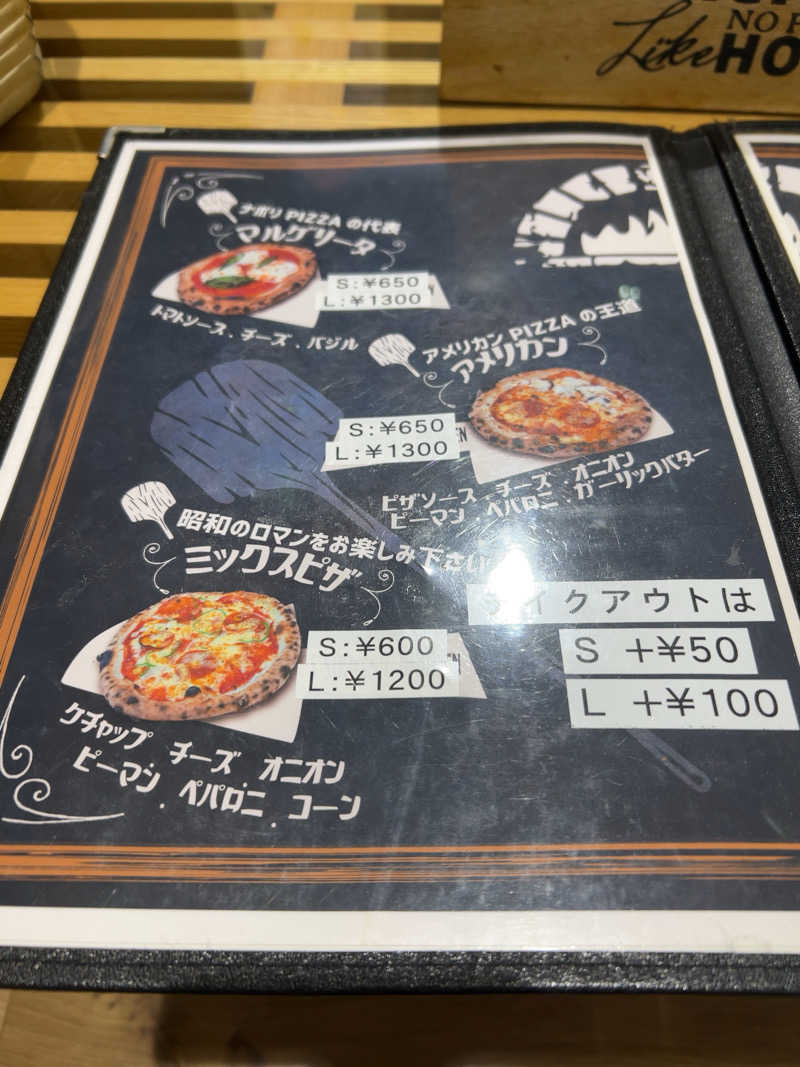 NO
Like HO
ナポリPIZZAの代表
マルゲリータ
S:¥650
L:¥1300
トマトソース、チーズ、バジル
アメリカンPIZZAの王道
アメリカン
S:¥650
L:¥1300
EN
ピザソース、チーズ、オニオン
ピーマン、ペパロニ、ガーリックバター
昭和のロマンをお楽しみ下さい
ミックスピザ
S:¥600
L:¥1200
ケチャップ、チーズ、オニオン
ピーマン、ペパロニ、コーン
テイクアウトは
S +¥50
L +¥100